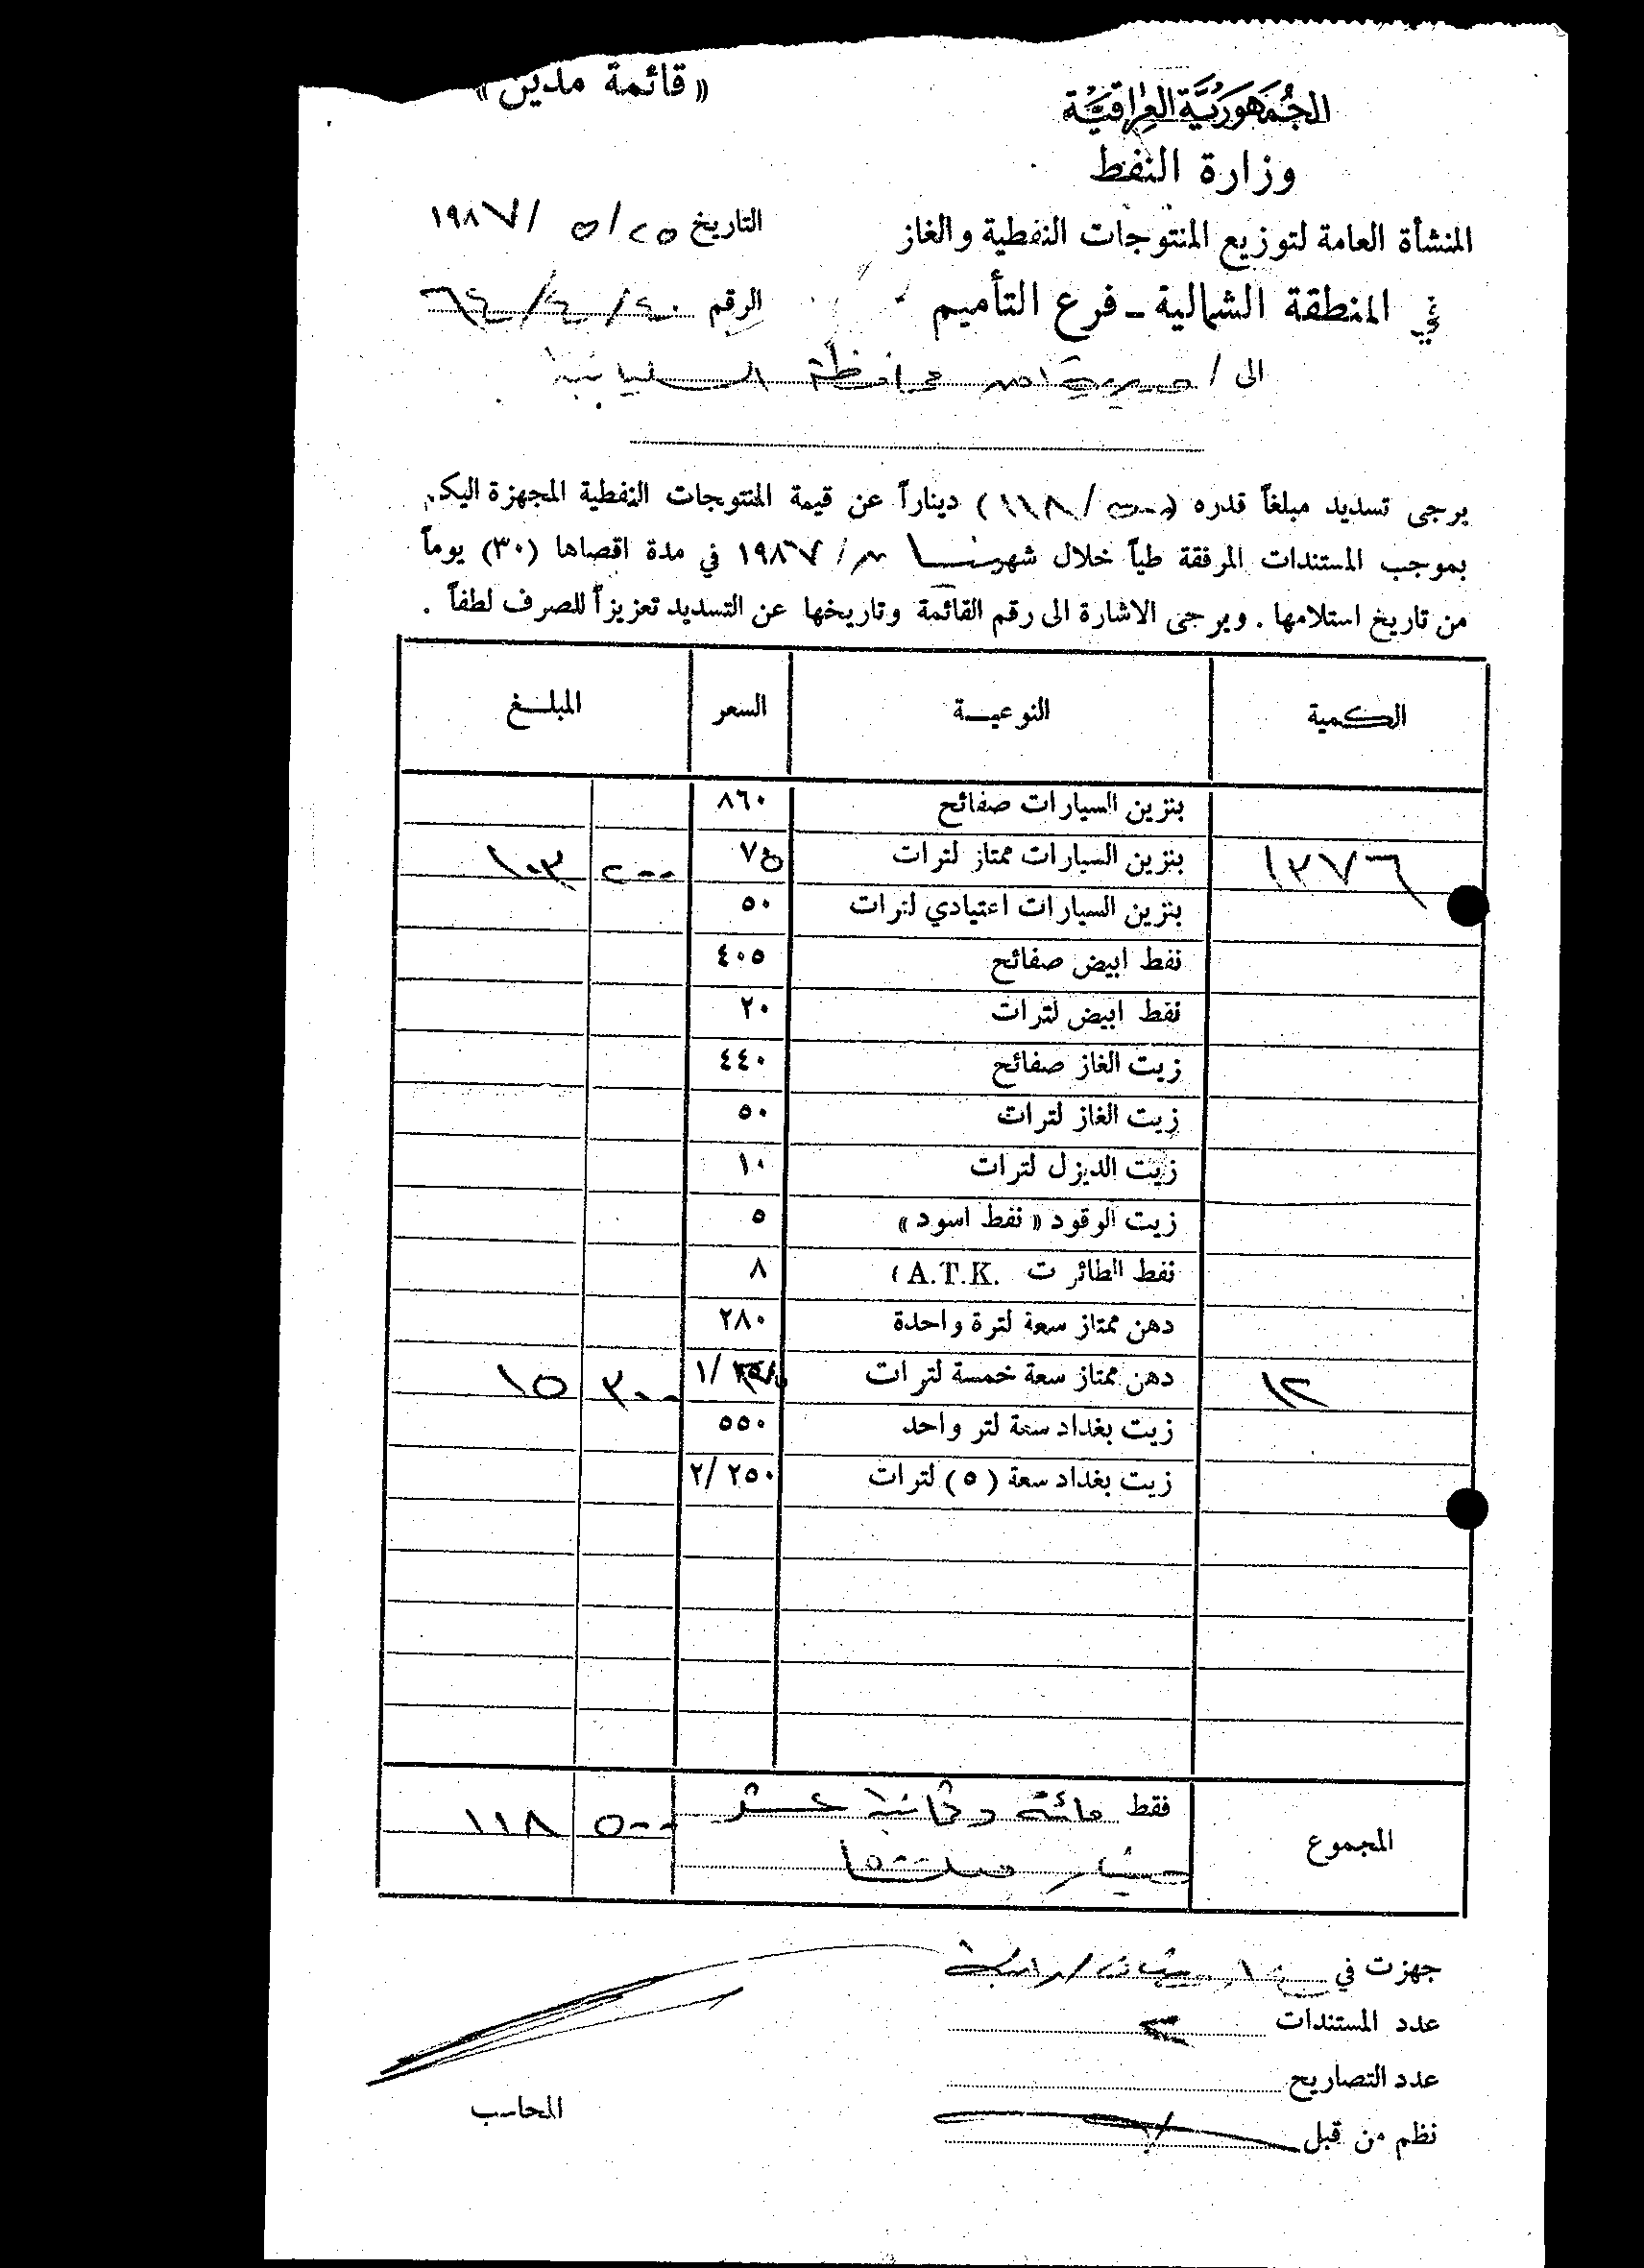 « قائمة مدين »
الجمهورية العراقية
وزارة النفط
المنشأة العامة لتوزيع المنتوجات النفطية والغاز
التاريخ ٢٥/ ٥ /١٩٨٧
في المنطقة الشمالية ـ فرع التأميم
الرقم ٤٠/٤/٦٤
الى / مديرية امن محافظة السليمانية
يرجى تسديد مبلغاً قدره (٥٠٠/١١٨) ديناراً عن قيمة المنتوجات النفطية المجهزة اليكم
بموجب المستندات المرفقة طياً خلال شهر /١٩٨٧ في مدة اقصاها (٣٠) يوماً
من تاريخ استلامها . ويرجى الاشارة الى رقم القائمة وتاريخها عن التسديد تعزيزاً للصرف لطفاً .
الكمية النوعية السعر المبلغ
بنزين السيارات صفائح ٨٦٠
١٣٧٦ بنزين السيارات ممتاز لترات ٧٥ ٢٠٠ ١٠٣
بنزين السيارات اعتيادي لترات ٥٠
نفط ابيض صفائح ٤٠٥
نفط ابيض لترات ٢٠
زيت الغاز صفائح ٤٤٠
زيت الغاز لترات ٥٠
زيت الديزل لترات ١٠
زيت الوقود « نفط اسود » ٥
نفط الطائرت A.T.K. ٨
دهن ممتاز سعة لترة واحدة ٢٨٠
١٢ دهن ممتاز سعة خمسة لترات /١ ٣٠٠ ١٥
زيت بغداد سعة لتر واحد ٥٥٠
زيت بغداد سعة (٥) لترات ٢/٢٥٠
المجموع فقط مائة وثمانية عشر ٥٠٠ ١١٨
دينار
جهزت في
عدد المستندات
عدد التصاريح
نظم من قبل
المحاسب